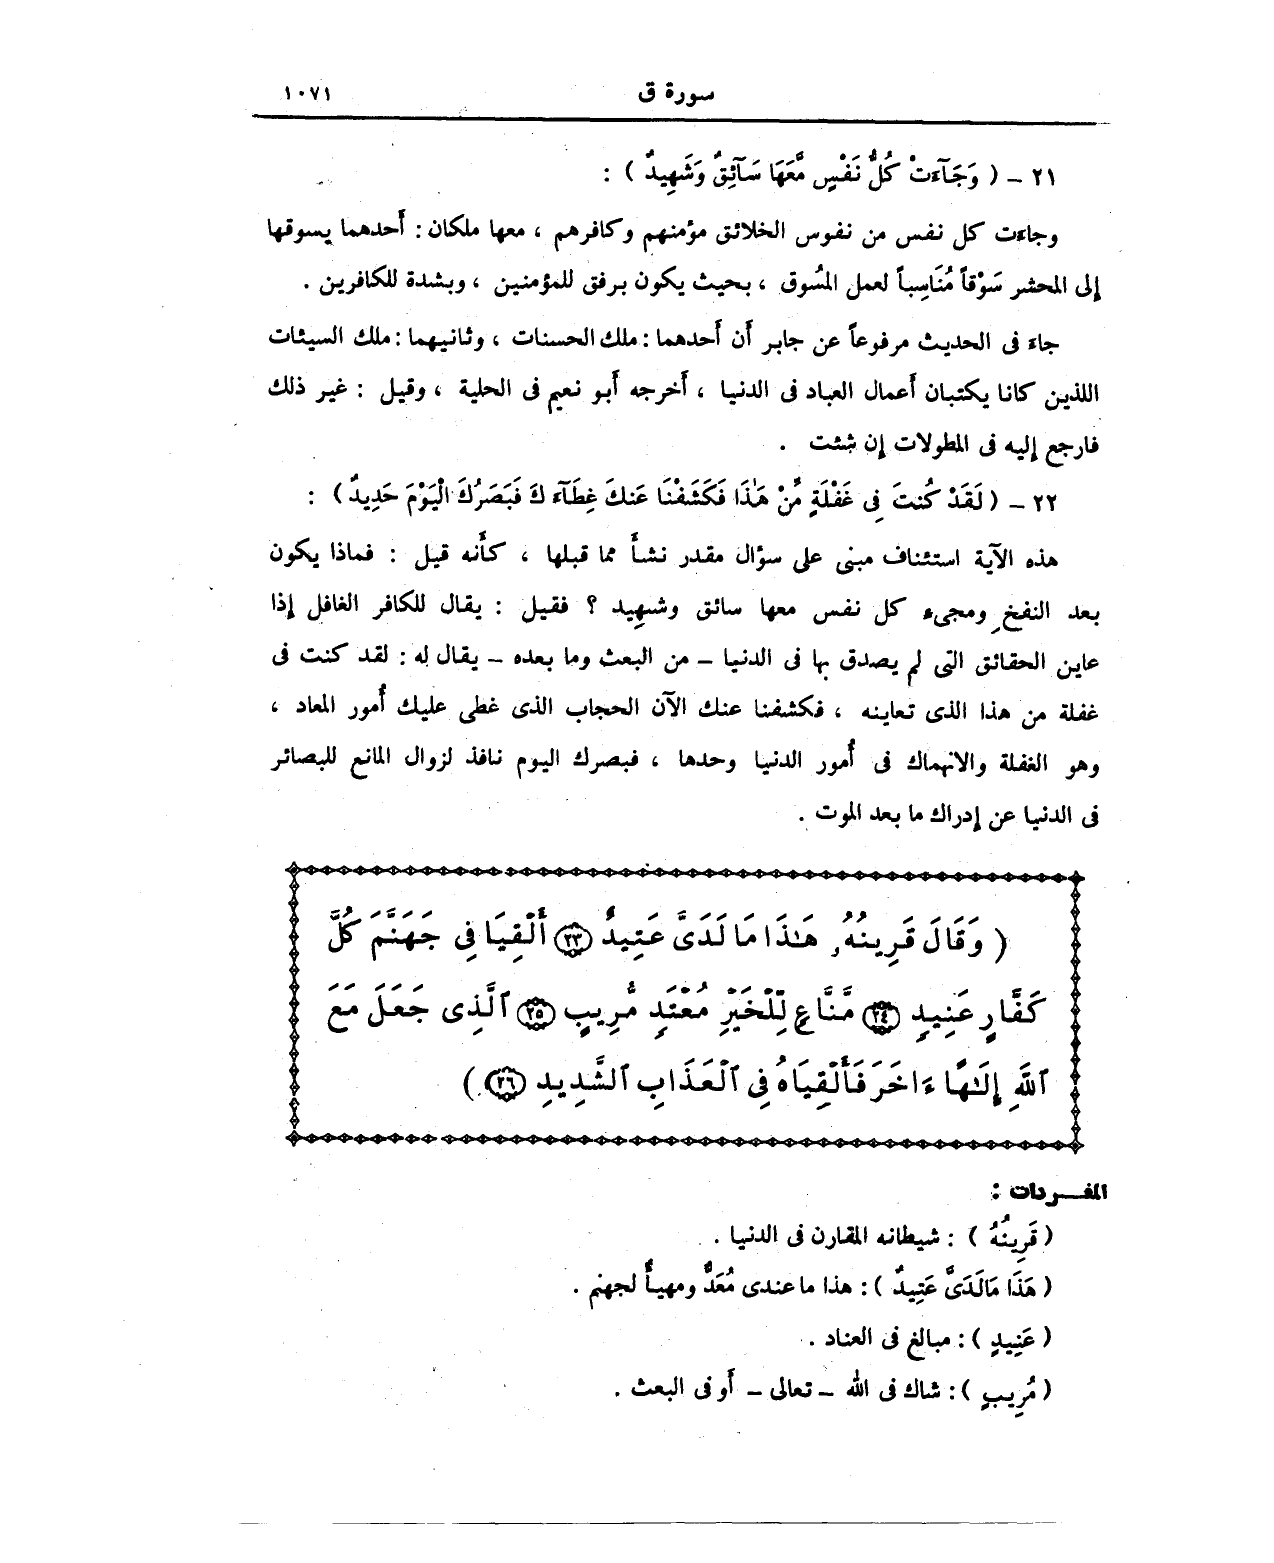 سورة ق ١٠٧١
٢١ – ( وَجَآءَتْ كُلُّ نَفْسٍ مَّعَهَا سَآئِقٌ وَشَهِيدٌ ) :
وجاءت كل نفس من نفوس الخلائق مؤمنهم وكافرهم ، معها ملكان : أَحدهما يسوقها
إلى المحشر سَوْقاً مُنَاسِباً لعمل المَسُوق ، بحيث يكون برفق للمؤمنين ، وبشدة للكافرين .
جاءَ فى الحديث مرفوعاً عن جابر أَن أَحدهما : ملك الحسنات ، وثانيهما : ملك السيئات
اللذين كانا يكتبان أَعمال العباد فى الدنيا ، أَخرجه أَبو نعيم فى الحلية ، وقيل : غير ذلك
فارجع إليه فى المطولات إن شئت .
٢٢ – ( لَقَدْ كُنتَ فِى غَفْلَةٍ مِّنْ هَٰذَا فَكَشَفْنَا عَنكَ غِطَآءَكَ فَبَصَرُكَ الْيَوْمَ حَدِيدٌ ) :
هذه الآية استئناف مبنى على سؤال مقدر نشأَ مما قبلها ، كأَنه قيل : فماذا يكون
بعد النفخ ومجىء كل نفس معها سائق وشهيد ؟ فقيل : يقال للكافر الغافل إذا
عاين الحقائق التى لم يصدق بها فى الدنيا – من البعث وما بعده – يقال له : لقد كنت فى
غفلة من هذا الذى تعاينه ، فكشفنا عنك الآن الحجاب الذى غطى عليك أُمور المعاد ،
وهو الغفلة والانهماك فى أُمور الدنيا وحدها ، فبصرك اليوم نافذ لزوال المانع للبصائر
فى الدنيا عن إدراك ما بعد الموت .
( وَقَالَ قَرِينُهُۥ هَـٰذَا مَا لَدَىَّ عَتِيدٌ ٢٣ أَلْقِيَا فِى جَهَنَّمَ كُلَّ
كَفَّارٍ عَنِيدٍ ٢٤ مَّنَّاعٍ لِّلْخَيْرِ مُعْتَدٍ مُّرِيبٍ ٢٥ ٱلَّذِى جَعَلَ مَعَ
ٱللَّهِ إِلَـٰهًا ءَاخَرَ فَأَلْقِيَاهُ فِى ٱلْعَذَابِ ٱلشَّدِيدِ ٢٦ )
المفـردات :
( قَرِينُهُ ) : شيطانه المقارن فى الدنيا .
( هَذَا مَالَدَىَّ عَتِيدٌ ) : هذا ما عندى مُعَدٌّ ومهيأٌ لجهنم .
( عَنِيدٍ ) : مبالغ فى العناد .
( مُرِيبٍ ) : شاك فى الله – تعالى – أَو فى البعث .